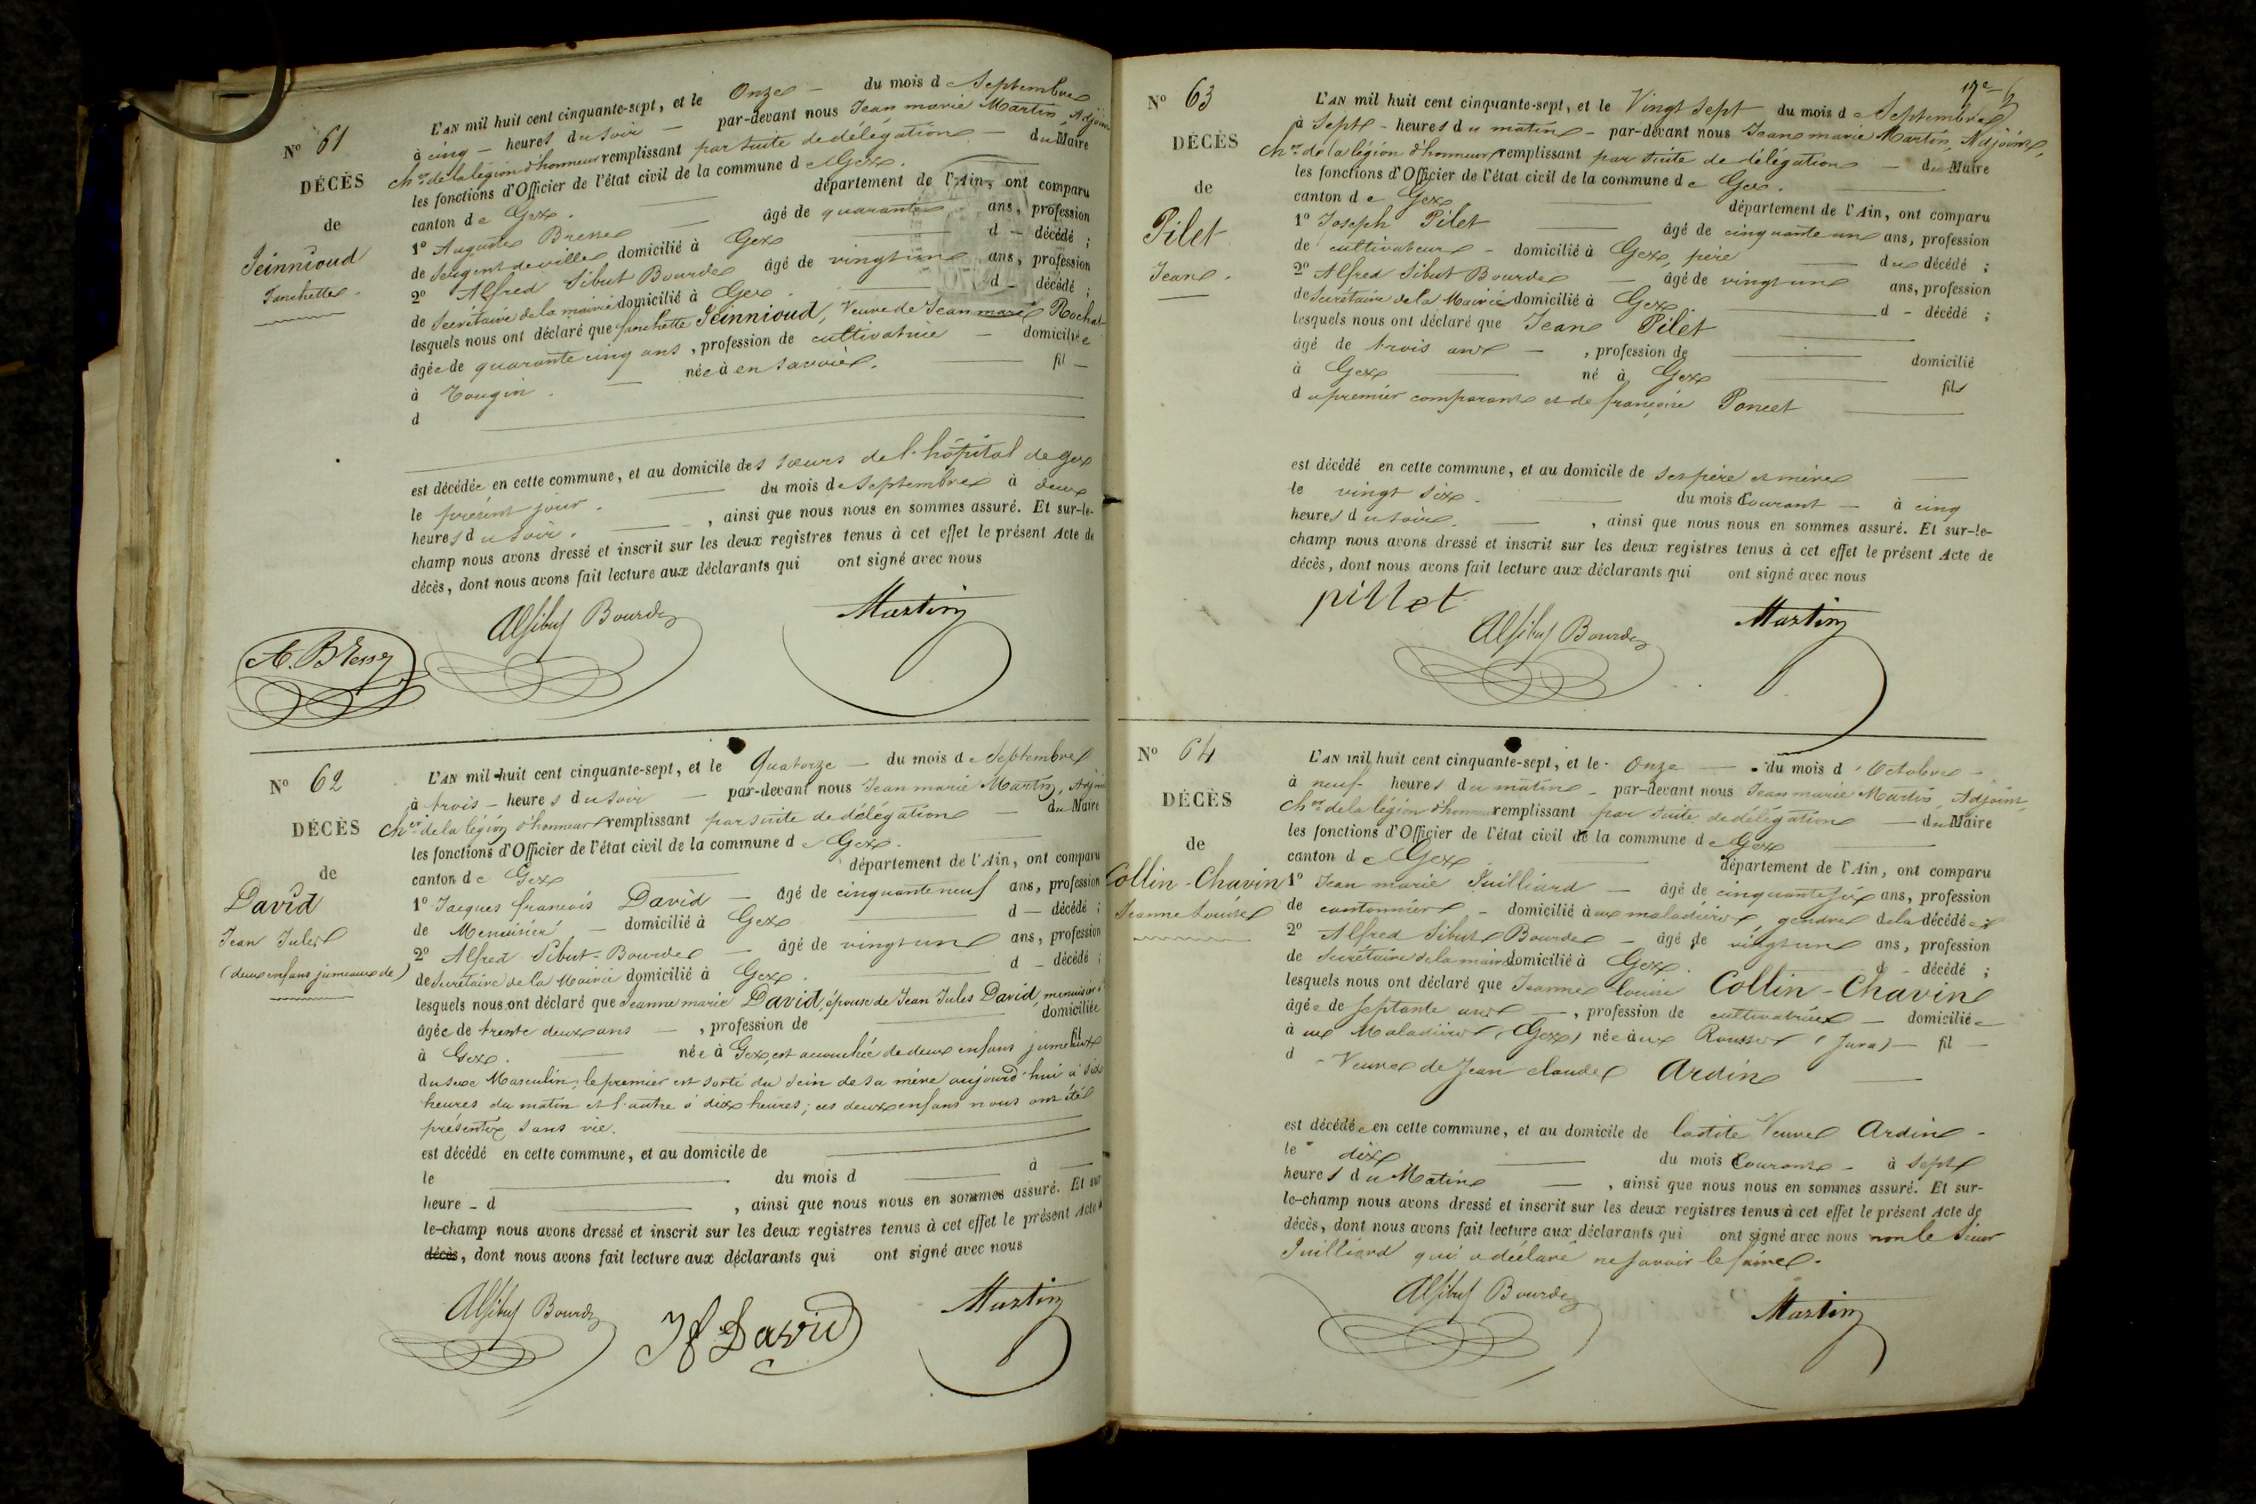 N° 61
DÉCÈS
de
Jeinnioud
Fanchette.
L'AN mil huit cent cinquante-sept, et le Onze du mois de Septembre
à cinq heures du soir par-devant nous Jean marie Martin, Adjoint
cher de la légion d'honneur remplissant par suite de délégation du Maire
les fonctions d'Officier de l'état civil de la commune de Gex.
canton de Gex. département de l'Ain, ont comparu
1° Auguste âgé de quarante ans, profession
de Sergent de ville domicilié à Gex d décédé ;
2° Alfred Sibut Bourde âgé de vingt un ans, profession
de Secrétaire de la mairie domicilié à Gex. d décédé ;
lesquels nous ont déclaré que fanchette Jeinnioud, Veuve de Jean marie Rochat
âgée de quarante cinq ans, profession de cultivatrice domiciliée
à Tougin. née à en Savoie. fil
d
est décédée en cette commune, et au domicile des sœurs de l'hôpital de gex
le présent jour. du mois de Septembre à deux
heures du soir. , ainsi que nous nous en sommes assuré. Et sur-le-
champ nous avons dressé et inscrit sur les deux registres tenus à cet effet le présent Acte de
décès, dont nous avons fait lecture aux déclarants qui ont signé avec nous
Alf Sibut Bourde Martin
N° 62
DÉCÈS
de
David
Jean Jules
(deux enfans jumeaux de)
L'AN mil huit cent cinquante-sept, et le Quatorze du mois de Septembre
à trois heures du soir par-devant nous Jean marie Martin, Adjoint
cher de la légion d'honneur remplissant par suite de délégation du Maire
les fonctions d'Officier de l'état civil de la commune de Gex.
canton de Gex département de l'Ain, ont comparu
1° Jacques francois David âgé de cinquante neuf ans, profession
de Menuisier domicilié à Gex d décédé ;
2° Alfred Sibut-Bourde âgé de vingt un ans, profession
de Secrétaire de la Mairie domicilié à Gex. d décédé ;
lesquels nous ont déclaré que Jeanne marie David, épouse de Jean Jules David, menuisier
âgée de trente deux ans , profession de domiciliée
à Gex. née à Gex, est accouchée de deux enfans jumeaux fil
du sexe Masculin, le premier est sorti du sein de sa mère aujourd'hui à six
heures du matin et l'autre à dix heures; ces deux enfans nous ont été
présentés sans vie.
est décédé en cette commune, et au domicile de
le du mois d à
heure d , ainsi que nous nous en sommes assuré. Et sur
le-champ nous avons dressé et inscrit sur les deux registres tenus à cet effet le présent Acte
décès, dont nous avons fait lecture aux déclarants qui ont signé avec nous
Alf Sibut Bourde J f David Martin
N° 63
DÉCÈS
de
Pilet
Jean.
L'AN mil huit cent cinquante-sept, et le Vingt sept du mois de Septembre
à Sept heures du matin par-devant nous Jean marie Martin, Adjoint,
cher de la légion d'honneur remplissant par suite de délégation du Maire
les fonctions d'Officier de l'état civil de la commune de Gex.
canton de Gex département de l'Ain, ont comparu
1° Joseph Pilet âgé de cinquante un ans, profession
de cultivateur domicilié à Gex, père du décédé ;
2° Alfred Sibut Bourde âgé de vingt un ans, profession
de Secrétaire de la Mairie domicilié à Gex d décédé ;
lesquels nous ont déclaré que Jean Pilet
âgé de trois ans , profession de domicilié
à Gex né à Gex fils
du premier comparant et de françoise Poncet
est décédé en cette commune, et au domicile de ses père et mère
le vingt six. du mois Courant à cinq
heures du soir. , ainsi que nous nous en sommes assuré. Et sur-le-
champ nous avons dressé et inscrit sur les deux registres tenus à cet effet le présent Acte de
décès, dont nous avons fait lecture aux déclarants qui ont signé avec nous
pillet
Alf Sibut Bourde Martin
N° 64
DÉCÈS
de
Collin-Chavin
Jeanne Louise
L'AN mil huit cent cinquante-sept, et le Onze du mois d'Octobre
à neuf heures du matin par-devant nous Jean marie Martin, Adjoint,
cher de la légion d'honneur remplissant par suite de délégation du Maire
les fonctions d'Officier de l'état civil de la commune de Gex
canton de Gex département de l'Ain, ont comparu
1° Jean marie Juilliard âgé de cinquante six ans, profession
de cantonnier domicilié à aux maladières, gendre de la décédée ;
2° Alfred Sibut Bourde âgé de vingt un ans, profession
de Secrétaire de la mairie domicilié à Gex. d décédé ;
lesquels nous ont déclaré que Jeanne Louise Collin-Chavin
âgée de septante ans , profession de cultivatrice domiciliée
à aux Maladières (Gex) née aux Rousses (Jura) fil
d Veuve de Jean claude Ardin
est décédée en cette commune, et au domicile de ladite Veuve Ardin
le dix du mois Courant à sept
heures du Matin , ainsi que nous nous en sommes assuré. Et sur-
le-champ nous avons dressé et inscrit sur les deux registres tenus à cet effet le présent Acte de
décès, dont nous avons fait lecture aux déclarants qui ont signé avec nous non le Sieur
Juilliard qui a déclaré ne savoir le faire.
Alf Sibut Bourde Martin